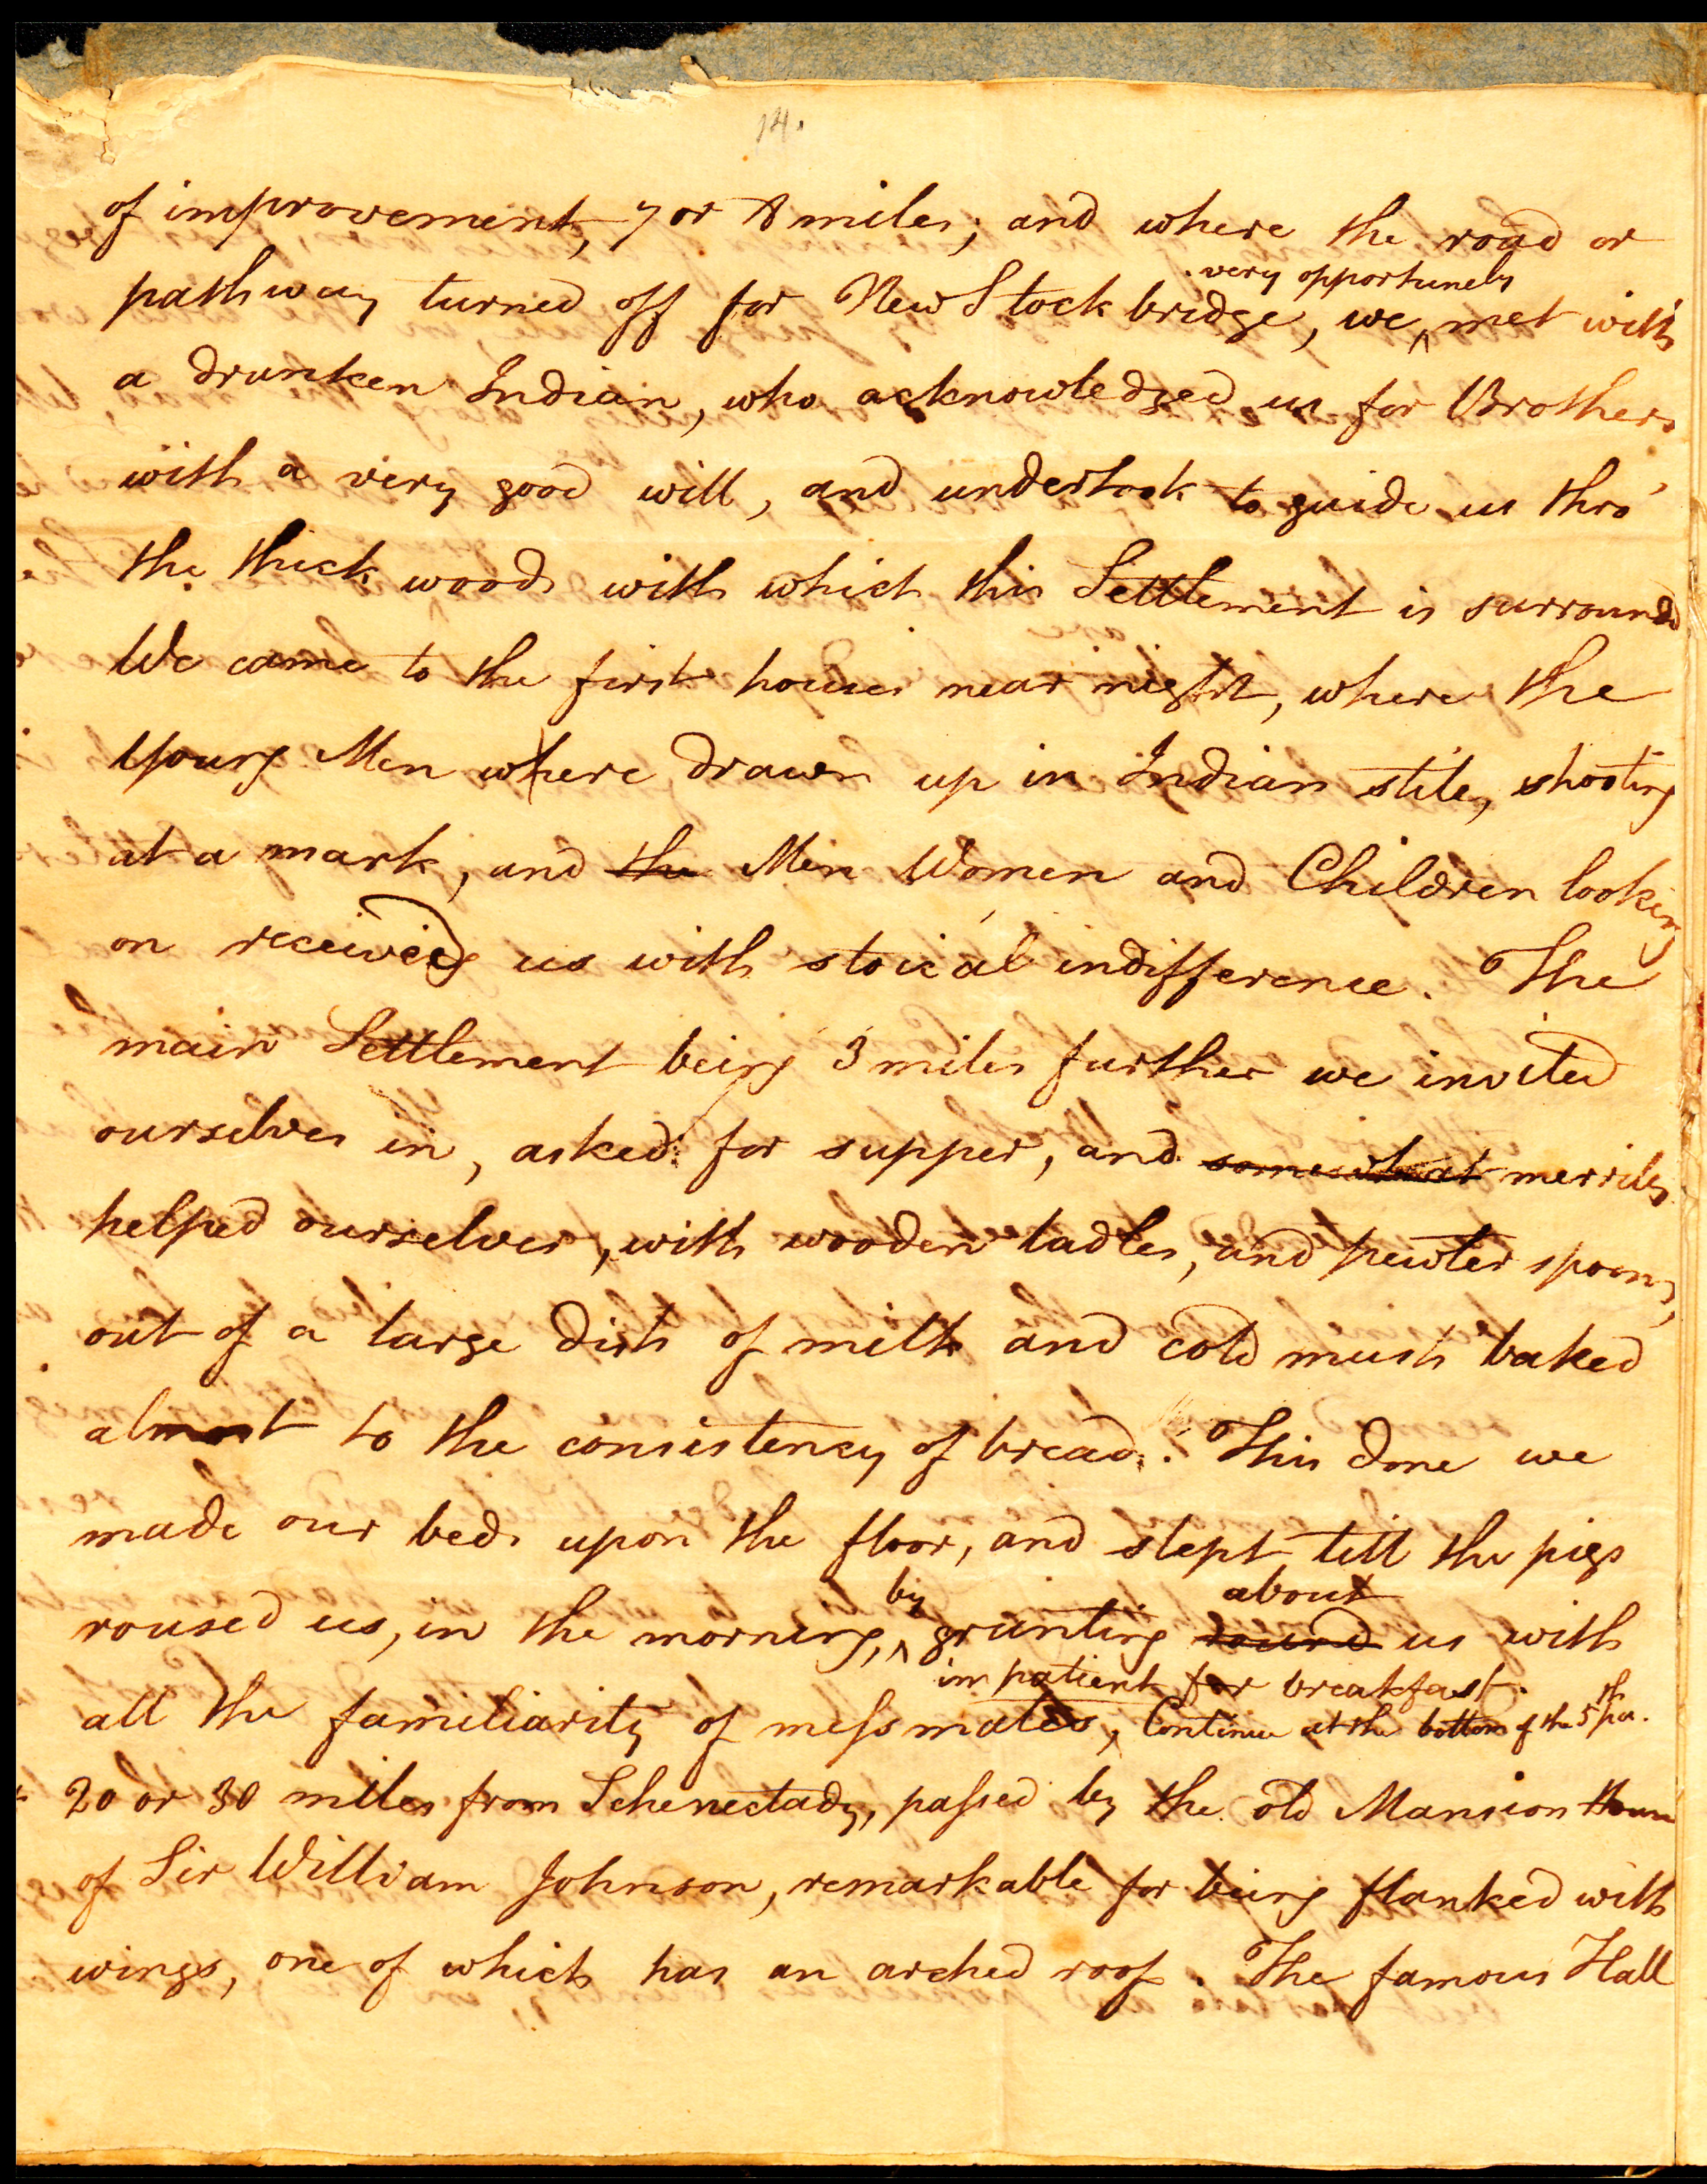 14.
of improvement, 7 or 8 miles; and where the road or
very opportunely
pathway turned off for New Stockbridge, we ^ met with
a drunken Indian, who acknowledged us for Brothers
with a very good will, and undertook to guide us thro'
the thick woods with which this Settlement is surrounde
We came to the first houses near night, where the
Young Men where drawn up in Indian stile, shooting
at a mark, and the Men Women and Children looking
on received us with stoical indifference. The
main Settlement being 3 miles further we invited
ourselves in, asked for supper, and somewhat merrily
helped ourselves, with wooden ladles, and pewter spoons,
out of a large dish of milk and cold mush baked
almost to the consistency of bread. This done we
made our beds upon the floor, and slept till the pigs
by about
roused us, in the morning, ^ grunting round us with
impatient for breakfast.
all the familiarity of messmates, Continue at the bottom of the 5th pa.
20 or 30 miles from Schenectady, passed by the old Mansion House
of Sir William Johnson, remarkable for being flanked with
wings, one of which has an arched roof. The famous Hall